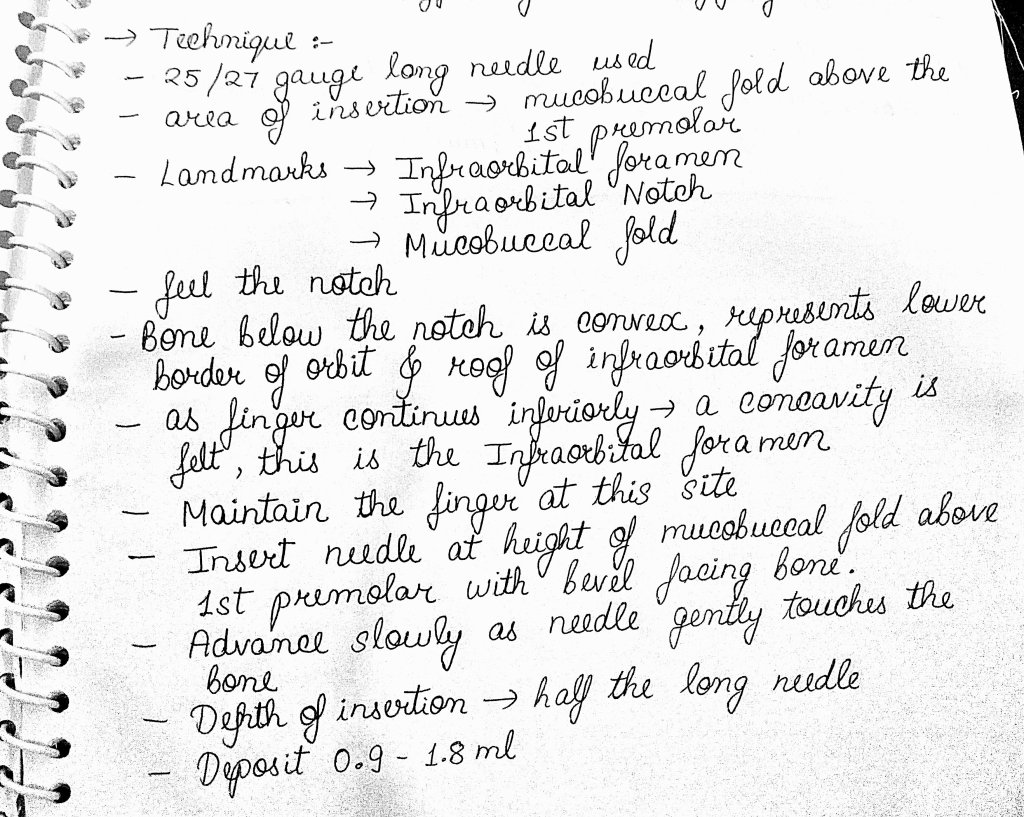 → Technique :-
- 25/27 gauge long needle used
- area of insertion → mucobuccal fold above the
1st premolar
- Landmarks → Infraorbital foramen
→ Infraorbital Notch
→ Mucobuccal fold
- feel the notch
- Bone below the notch is convex, represents lower
border of orbit & roof of infraorbital foramen
- as finger continues inferiorly → a concavity is
felt, this is the Infraorbital foramen
- Maintain the finger at this site
- Insert needle at height of mucobuccal fold above
1st premolar with bevel facing bone.
- Advance slowly as needle gently touches the
bone
- Depth of insertion → half the long needle
- Deposit 0.9 - 1.8 ml